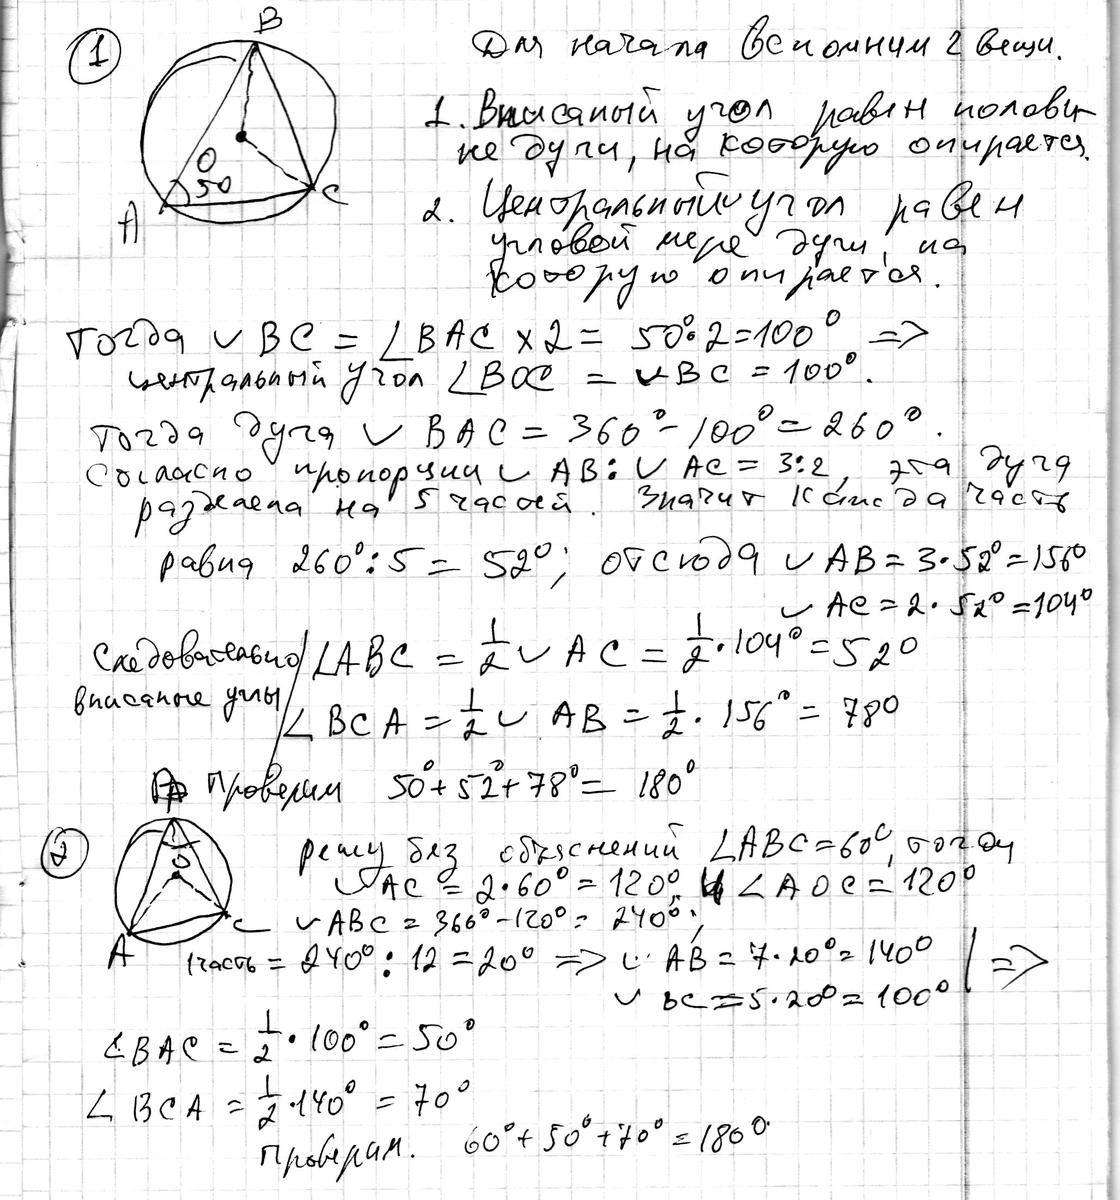 1
B
Для начала вспомним 2 вещи.
1. Вписаный угол равен полови-
не дуги, на которую опирается.
O
50
A
C
2. Центральный угол равен
угловой мере дуги, на
которую опирается.
Тогда ◡ BC = ∠BAC × 2 = 50°·2=100° =>
центральный угол ∠BOC = ◡BC = 100°.
Тогда дуга ◡ BAC = 360° - 100° = 260°.
Согласно пропорции ◡ AB : ◡ AC = 3:2, эта дуга
разделена на 5 частей. Значит каждая часть
равна 260° : 5 = 52°; отсюда ◡ AB = 3·52° = 156°
◡ AC = 2·52° = 104°
Следовательно ∠ABC = 1/2 ◡ AC = 1/2 · 104° = 52°
вписаные углы
∠BCA = 1/2 ◡ AB = 1/2 · 156° = 78°
Проверим 50° + 52° + 78° = 180°
2
O
A
C
решу без объяснений ∠ABC = 60°, тогда
◡ AC = 2·60° = 120°, и ∠AOC = 120°
◡ABC = 360° - 120° = 240°;
1часть = 240° : 12 = 20° => ◡ AB = 7·20° = 140° | =>
◡ BC = 5·20° = 100°
∠BAC = 1/2 · 100° = 50°
∠BCA = 1/2 · 140° = 70°
Проверим. 60° + 50° + 70° = 180°